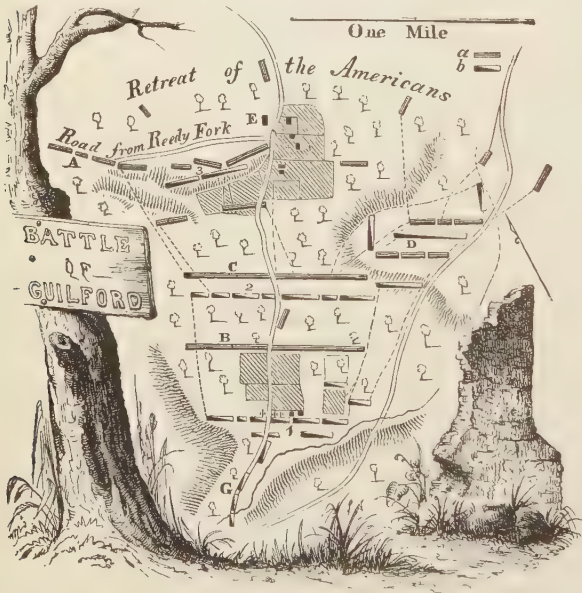 One Mile
a
b
Retreat of the Americans
E
Road from Reedy Fork
A
3
BATTLE
OF
GUILFORD
D
C
2
B
1
G